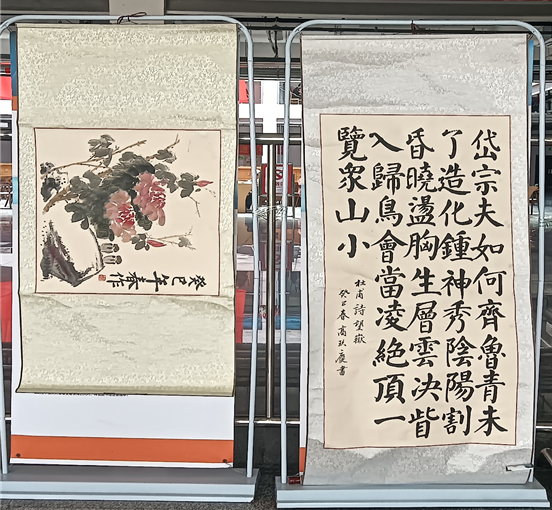 岱宗夫如何齊魯青未
了造化鍾神秀陰陽割
昏曉盪胸生層雲决眥
入歸鳥會當凌絕頂一
覽眾山小
杜甫詩望嶽
癸巳春高玖慶書
癸巳年春作